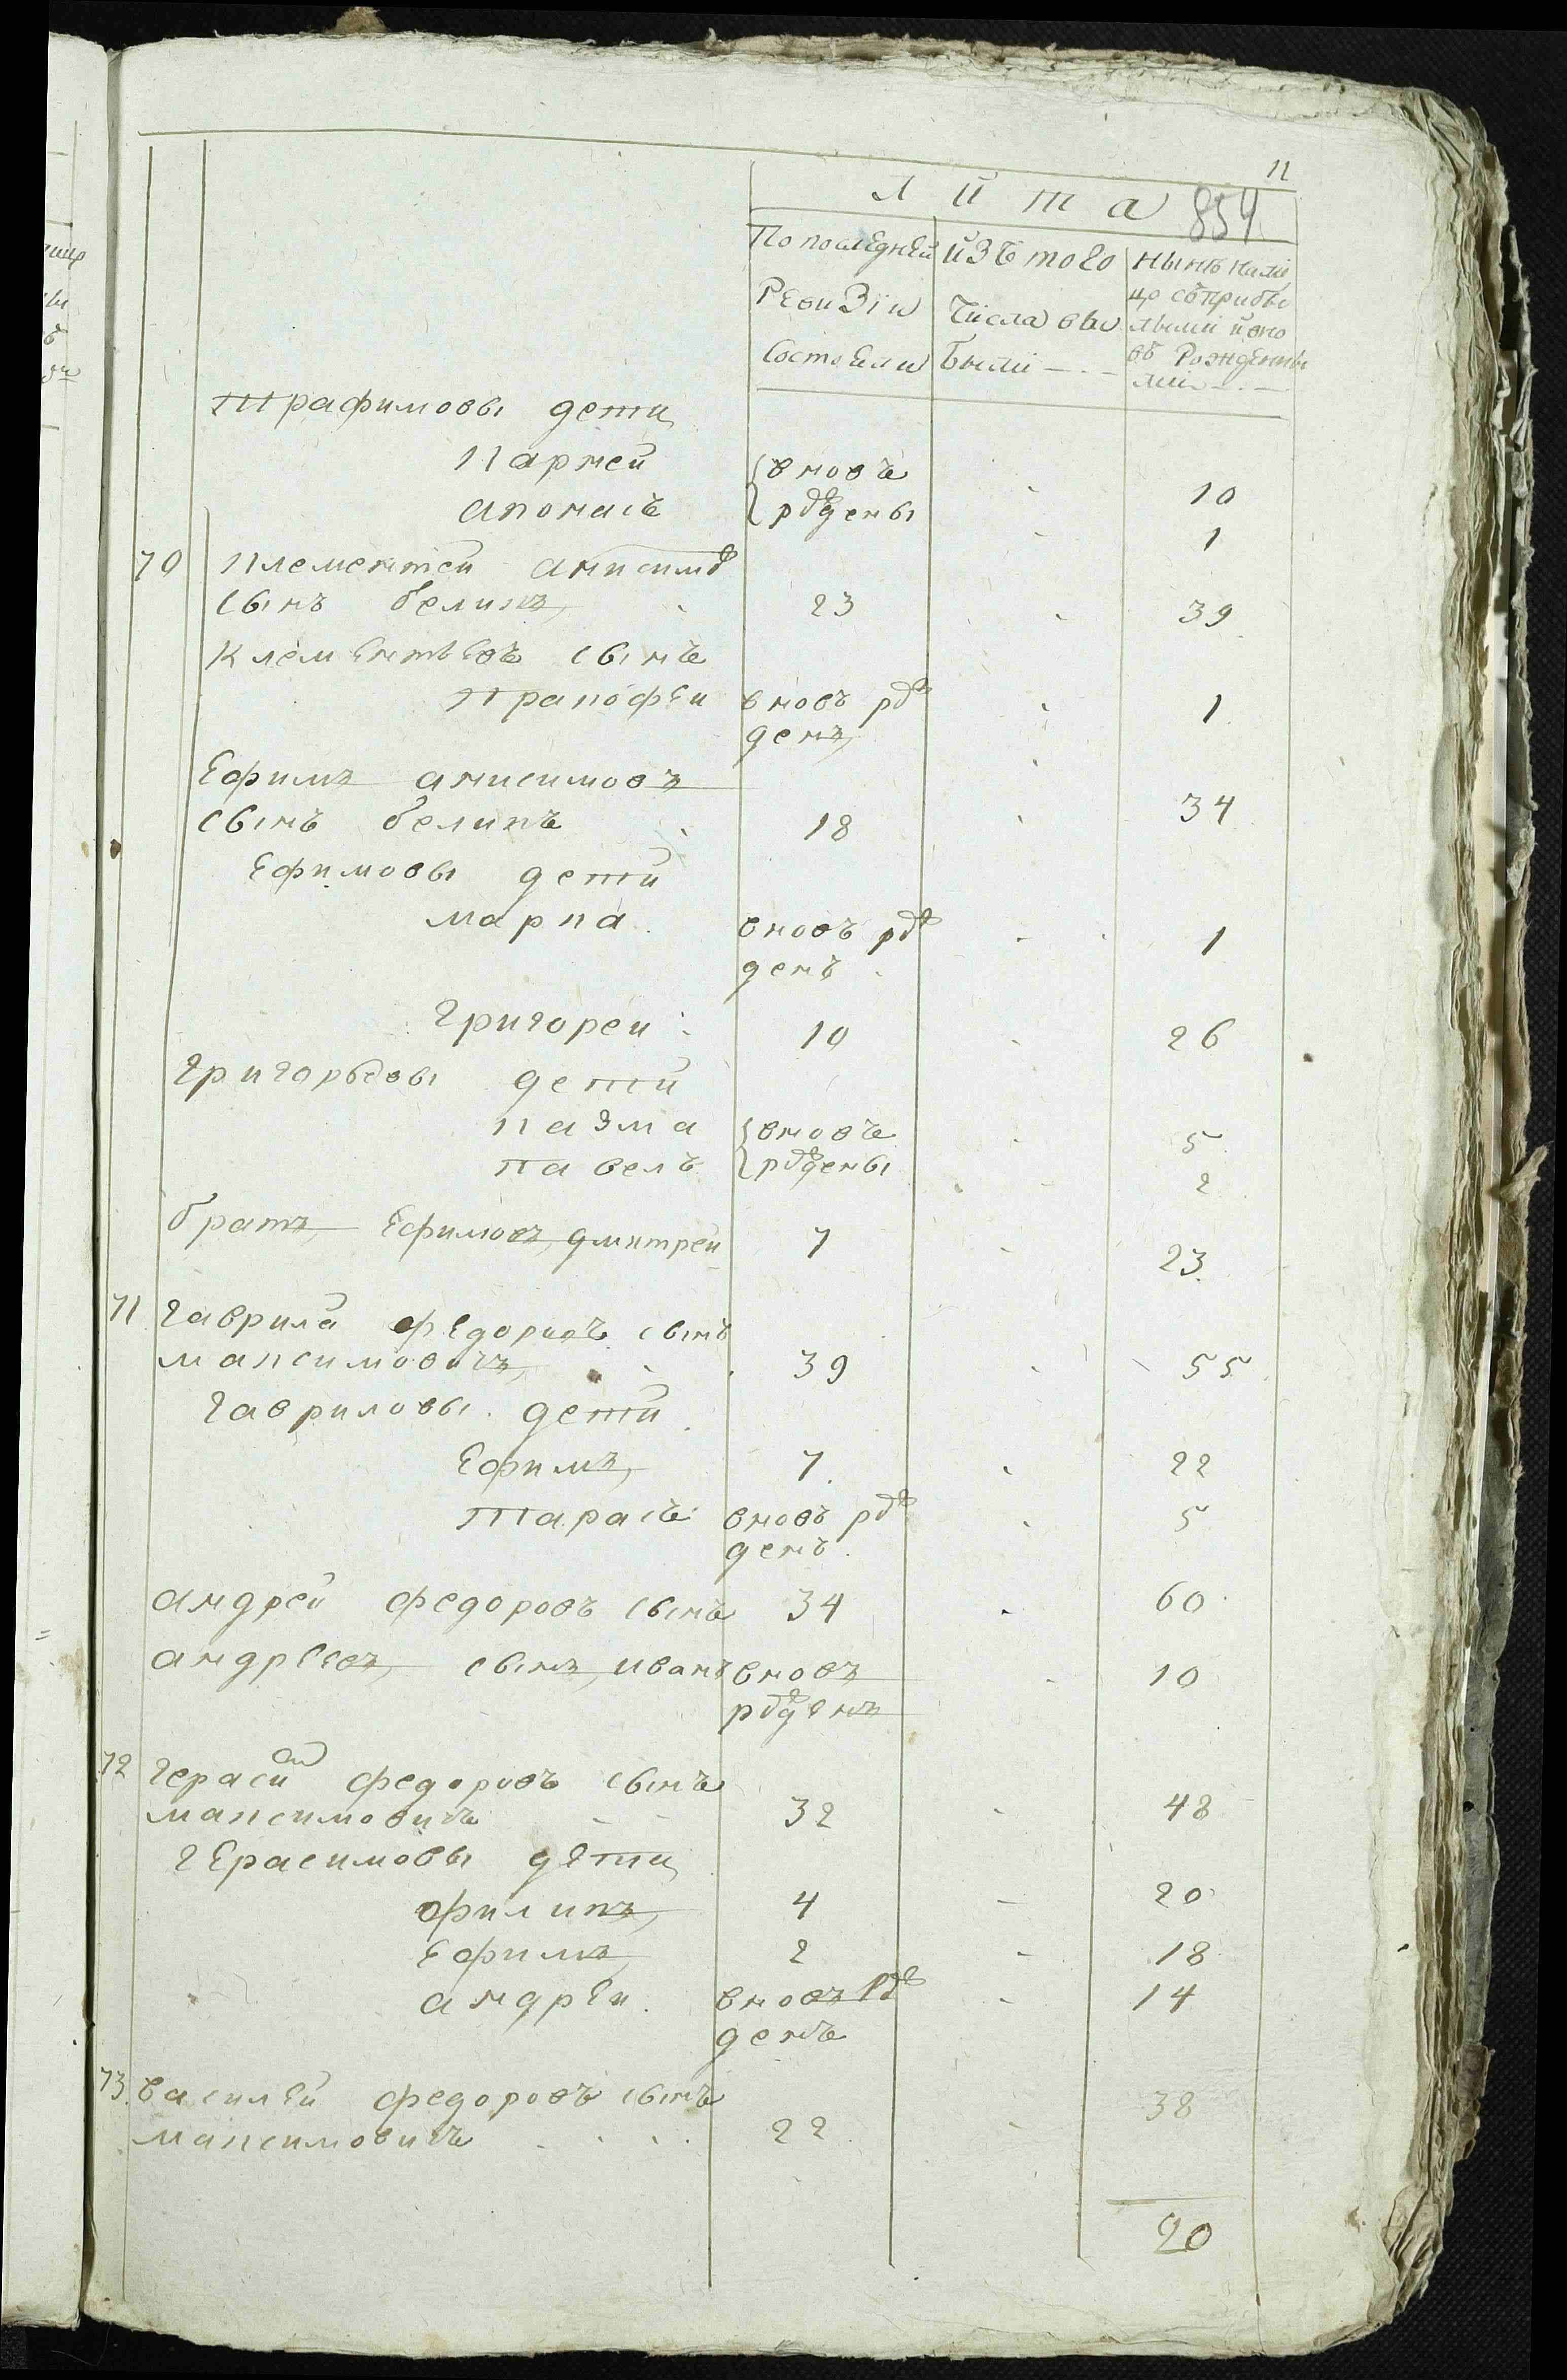 11
лѣта 854
По последней изъ того нынѣ нали
Ревизіи числа вы цо съприбы
Состояли были лыми и вно
въ Рожденны
ми
трафимовы дети
карней вновь 10
апонасъ рождены 1
70 клементей анисимо
сынъ беликъ 23 39
клементьевъ сынъ
прапофеи вновъ рож 1
денъ
Ефимъ анисимовъ
сынъ беликъ 18 34
Ефимовы дети
марка вновъ рож 1
денъ
григореи 10 26
григорьевы дети
казма вновъ 5
павелъ рождены 2
братъ Ефимовъ дмитреи 7 23
71 гаврила федоровъ сынъ
максимовичъ 39 55
гавриловы дети
Ефимъ 7 22
тарасъ вновъ рож 5
денъ
андреи федоровъ сынъ 34 60
андреевъ сынъ иванъ вновъ 10
рожденъ
72 герасим федоровъ сынъ
максимовичъ 32 48
герасимовы дети
филипъ 4 20
Ефимъ 2 18
андреи вновъ рож 14
денъ
73 василеи федоровъ сынъ
максимовичъ 22 38
20